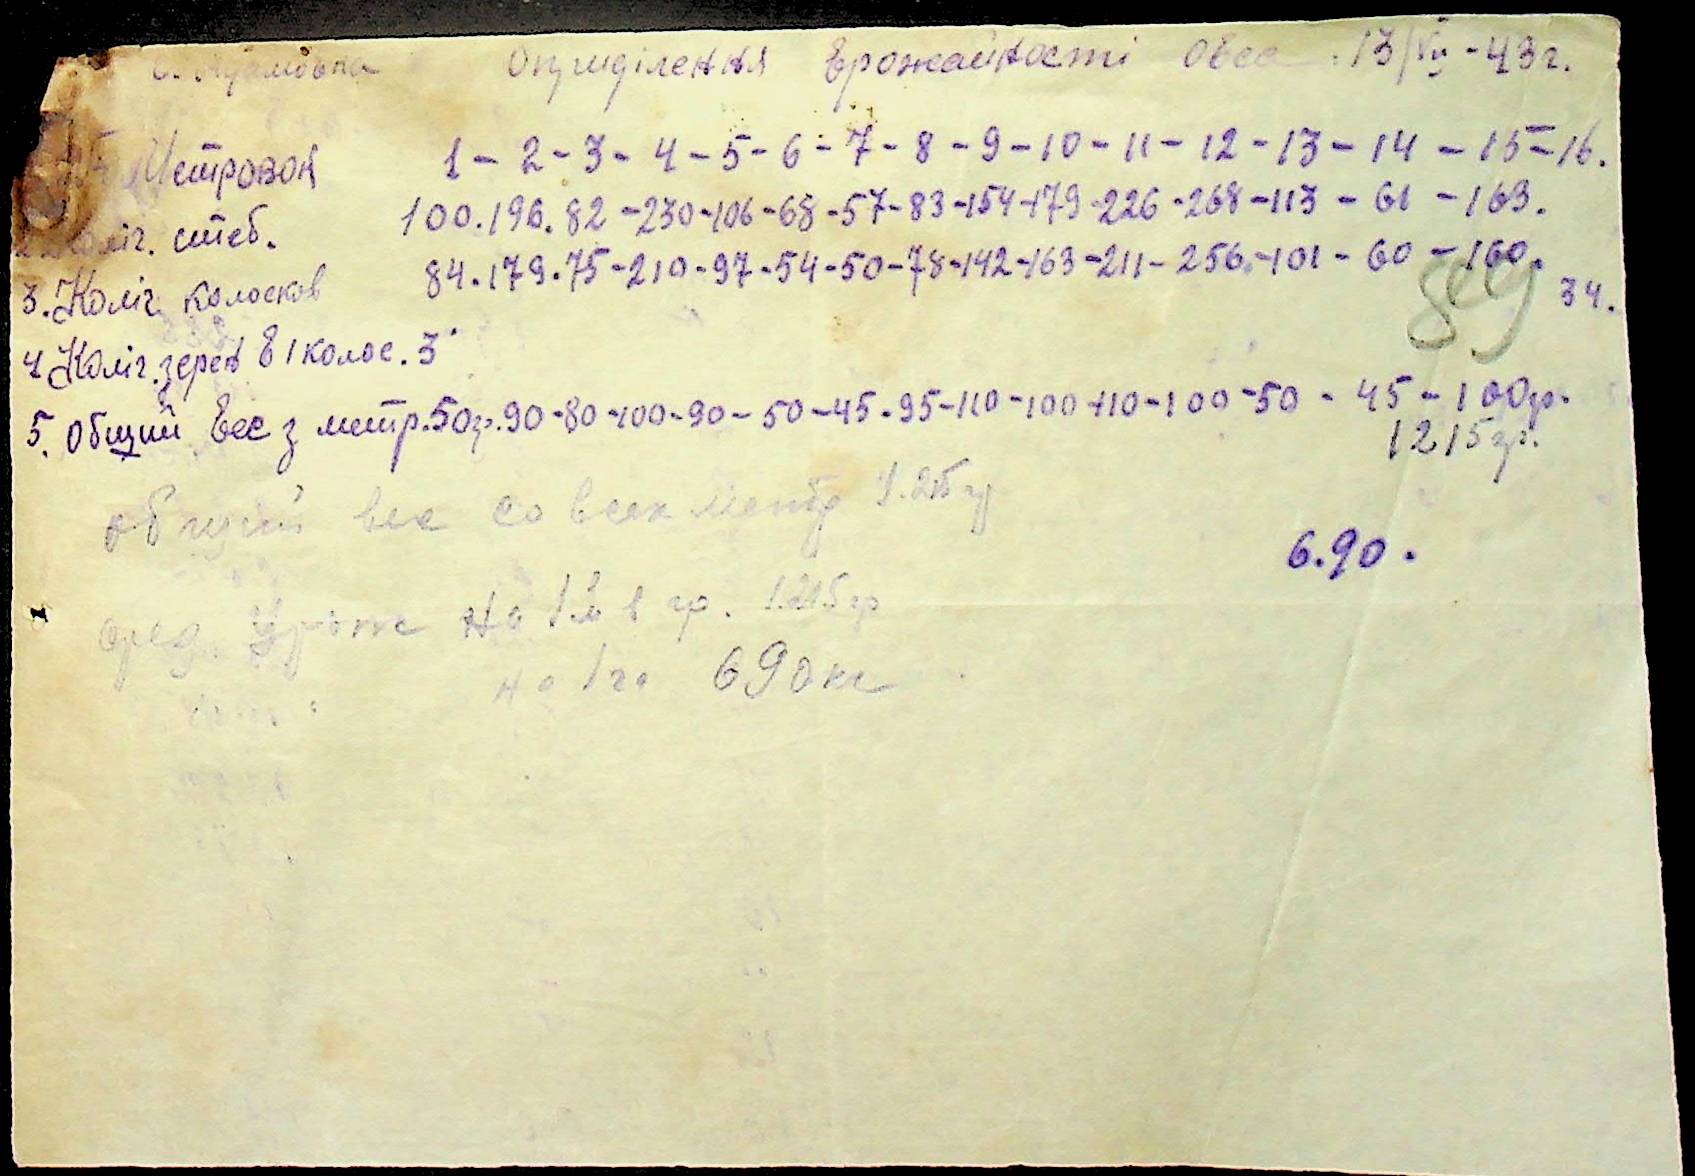 с. Адамовка Оприділення врожайності Овес. 13/VII - 43 г.
Метровок 1 - 2 - 3 - 4 - 5 - 6 - 7 - 8 - 9 - 10 - 11 - 12 - 13 - 14 - 15 - 16.
2. Коліч. стеб. 100. 196. 82 - 230 - 106 - 68 - 57 - 83 - 154 - 179 - 226 - 268 - 113 - 61 - 163.
3. Коліч. колосков 84. 179. 75 - 210 - 97 - 54 - 50 - 78 - 142 - 163 - 211 - 256 - 101 - 60 - 160.
34.
4 Коліч. зерен в 1 колос. 3
5. Общий вес з метр. 50 гр. 90 - 80 - 100 - 90 - 50 - 45 - 95 - 110 - 100 - 110 - 100 - 50 - 45 - 100 гр.
1215 гр.
общий вес со всех метр 1.215 гр
6.90.
сред. Урож на 1 м в гр. 1.215 гр
на 1 га 690 кг